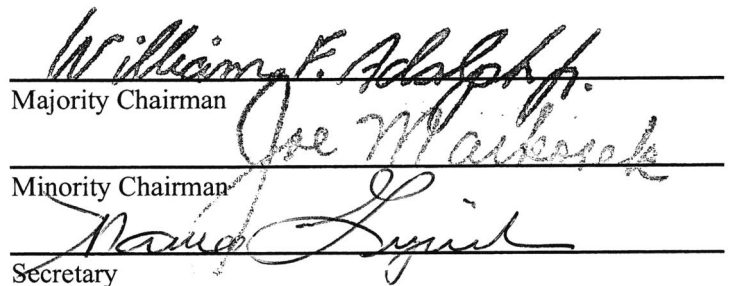 William F. Adolph Jr.
Majority Chairman
Joe Markosek
Minority Chairman
Nancy
Secretary